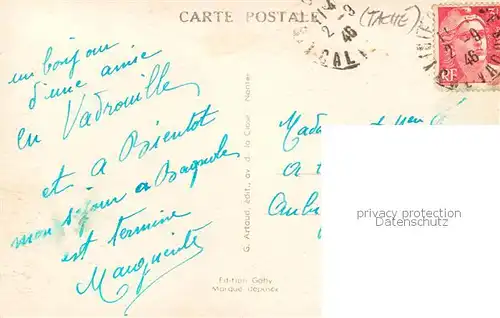 CARTE POSTALE
(TACHÉ)
2-9
46
CALV
2-9
46
RF
un bonjour
d'une amie
en Vadrouille
et a Bientot
mon séjour a Bagnoles
est termine
Marguerite
G. Artaud, édit., av. de la Close, Nantes
Edition Gaby
Marque déposée
privacy protection
Datenschutz